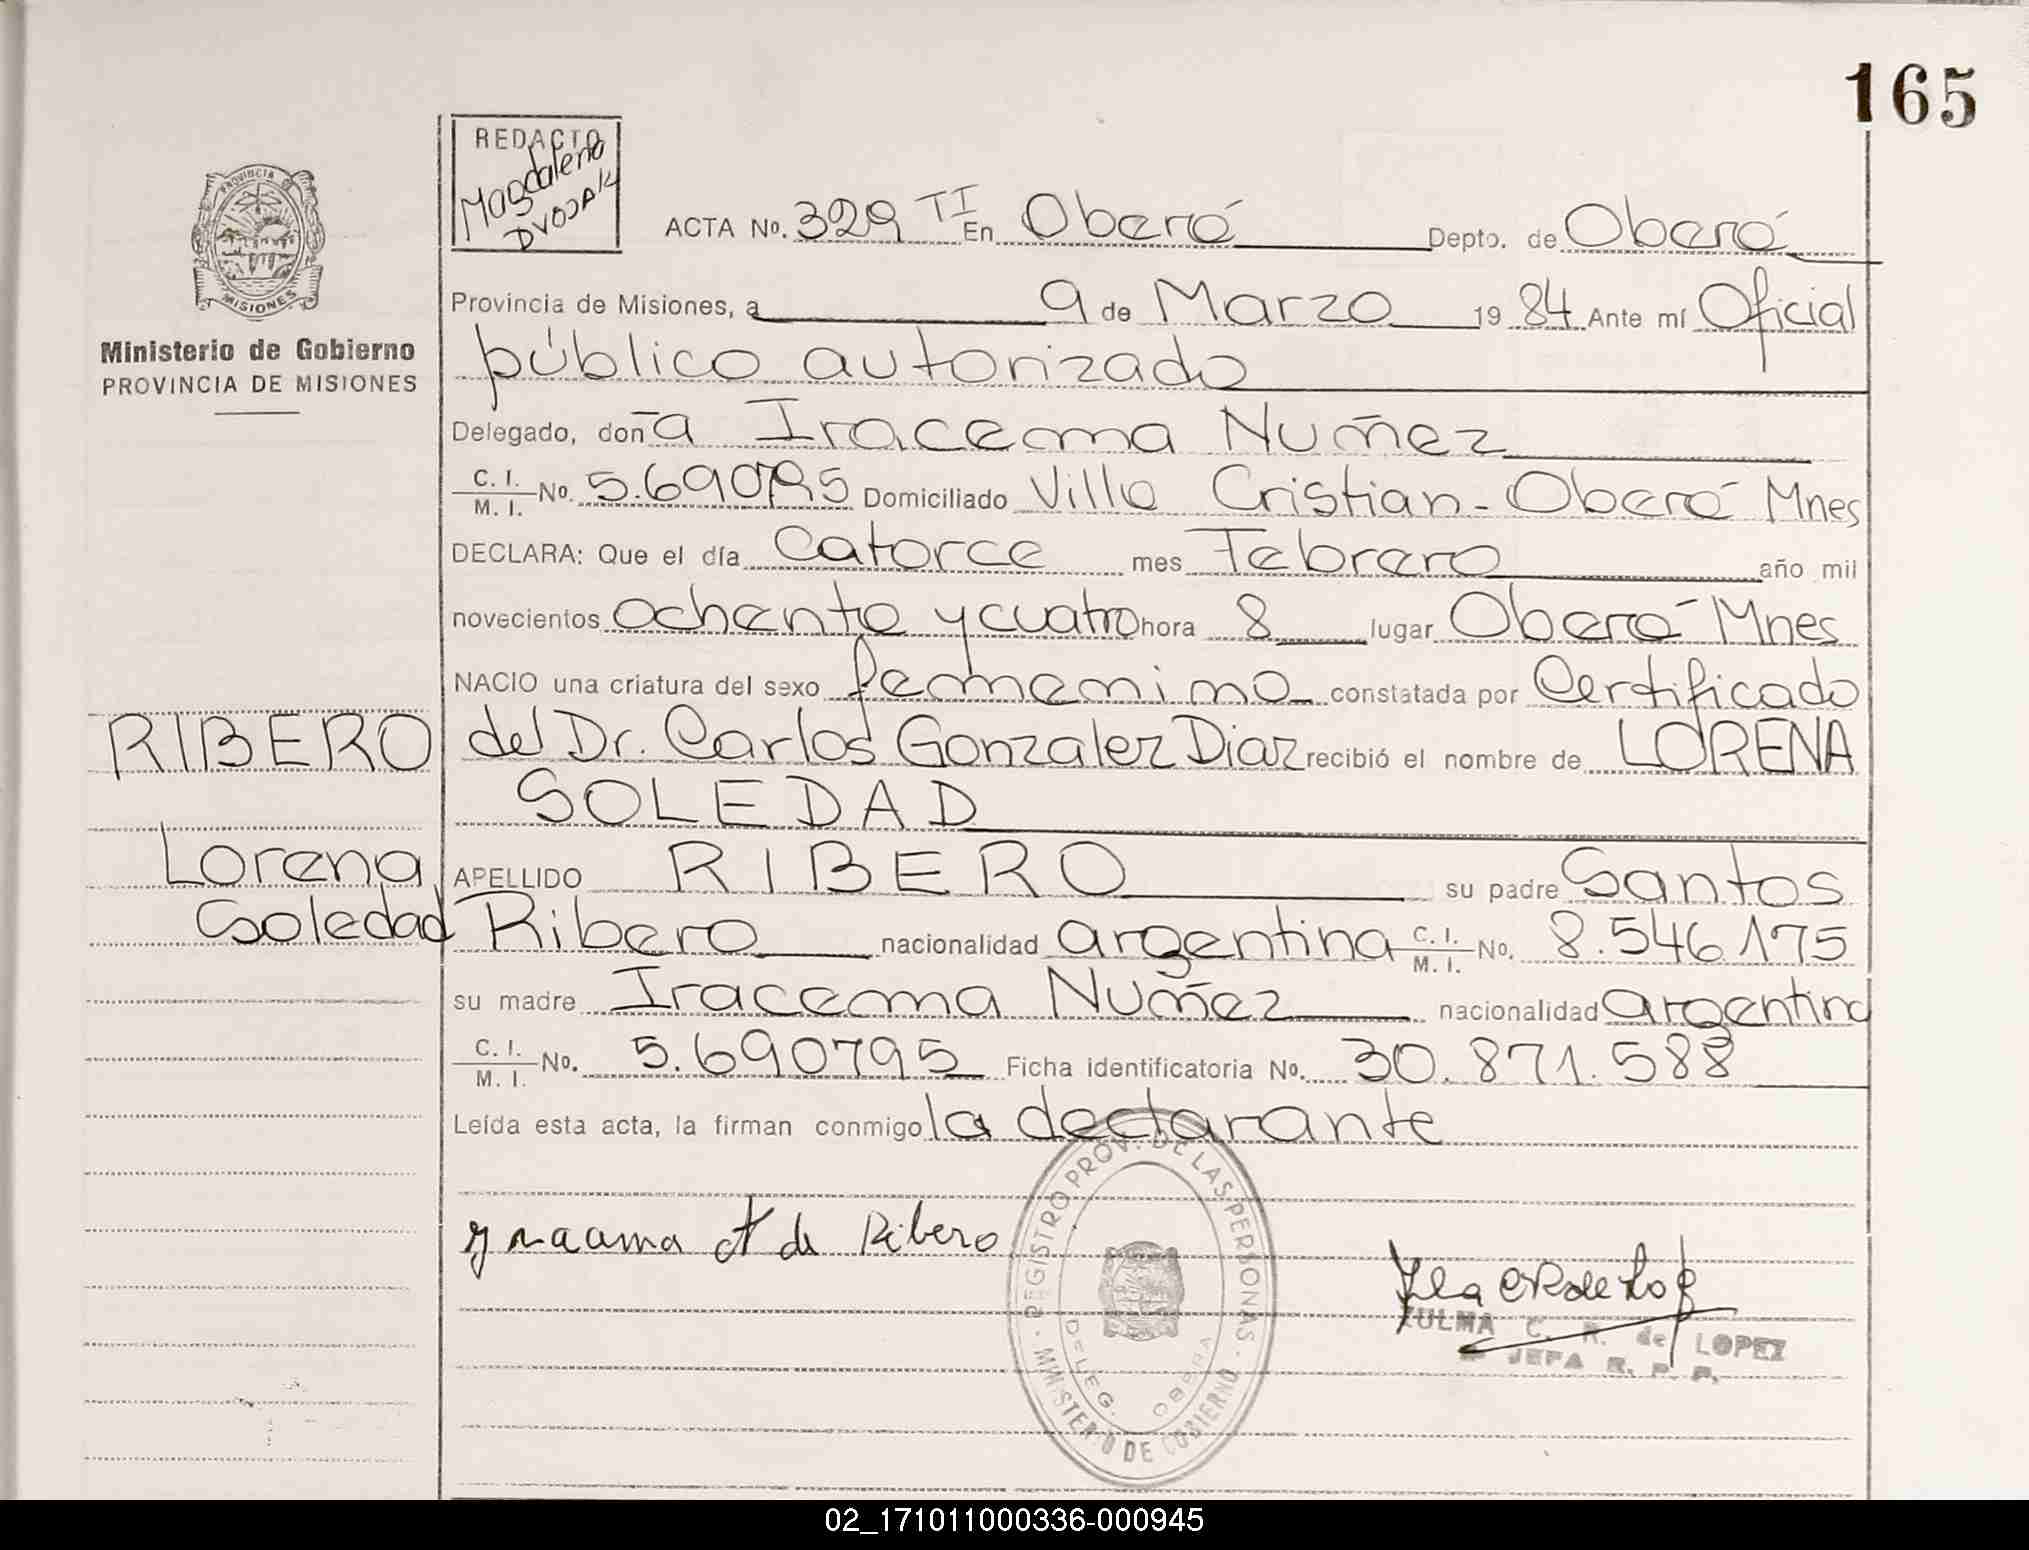 165
REDACTO
Magdalena
DVOJAK
ACTA No. 329 TI En Oberá Depto. de Oberá
PROVINCIA DE
MISIONES
Provincia de Misiones, a 9 de Marzo 1984 Ante mí Oficial
Ministerio de Gobierno
PROVINCIA DE MISIONES
público autorizado
Delegado, doña Iracema Nuñez
C. I. / M. I. No. 5.690795 Domiciliado Villa Cristian - Oberá Mnes
DECLARA: Que el día Catorce mes Febrero año mil
novecientos ochenta y cuatro hora 8 lugar Oberá Mnes
NACIO una criatura del sexo femenino constatada por Certificado
RIBERO
del Dr. Carlos Gonzalez Diaz recibió el nombre de LORENA
SOLEDAD
Lorena
Soledad
APELLIDO RIBERO su padre Santos
Ribero nacionalidad argentina C. I. / M. I. No. 8.546.175
su madre Iracema Nuñez nacionalidad argentina
C. I. / M. I. No. 5.690795 Ficha identificatoria No. 30.871.588
Leída esta acta, la firman conmigo la declarante
de Ribero
REGISTRO PROV. DE LAS PERSONAS - MINISTERIO DE GOBIERNO
DELEG. OBERA
ZULMA C. R. de LOPEZ
JEFA R. P. P.
02_171011000336-000945